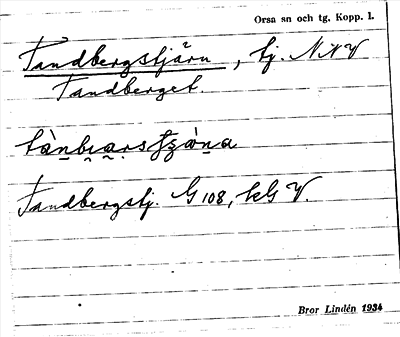 Orsa sn och tg. Kopp. l.
Tandbergstjärn, tj. N.N.V
Tandberget.
Tandbergstj. G 108, kG V.
Bror Lindén 1934